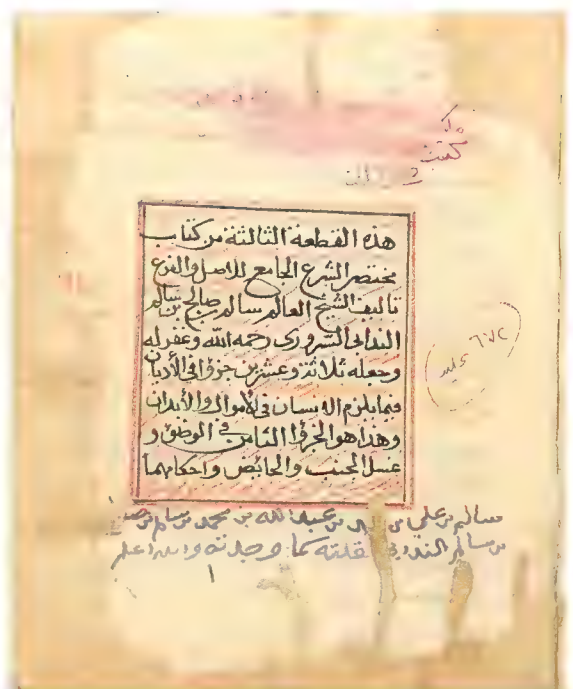 مكتبة
هذه القطعة الثالثة من كتاب
مختصر الشرع الجامع للاصل والفرع
تاليف الشيخ العالم سالم بن صالح بن سالم
الندابي السروري رحمه الله وغفر له
وجعله ثلاثة وعشرين جزؤا في الأديان
فيما يلزم الانسان في الأموال والأبدان
وهذا هو الجزؤ الثامن في الوضوؤ و
غسل الجنب والحائض واحكامهما
٦٧٢
سالم بن علي بن بن عبدالله بن محمد بن سالم بن
بن سالم الندابي نقلته كما وجدته والله اعلم